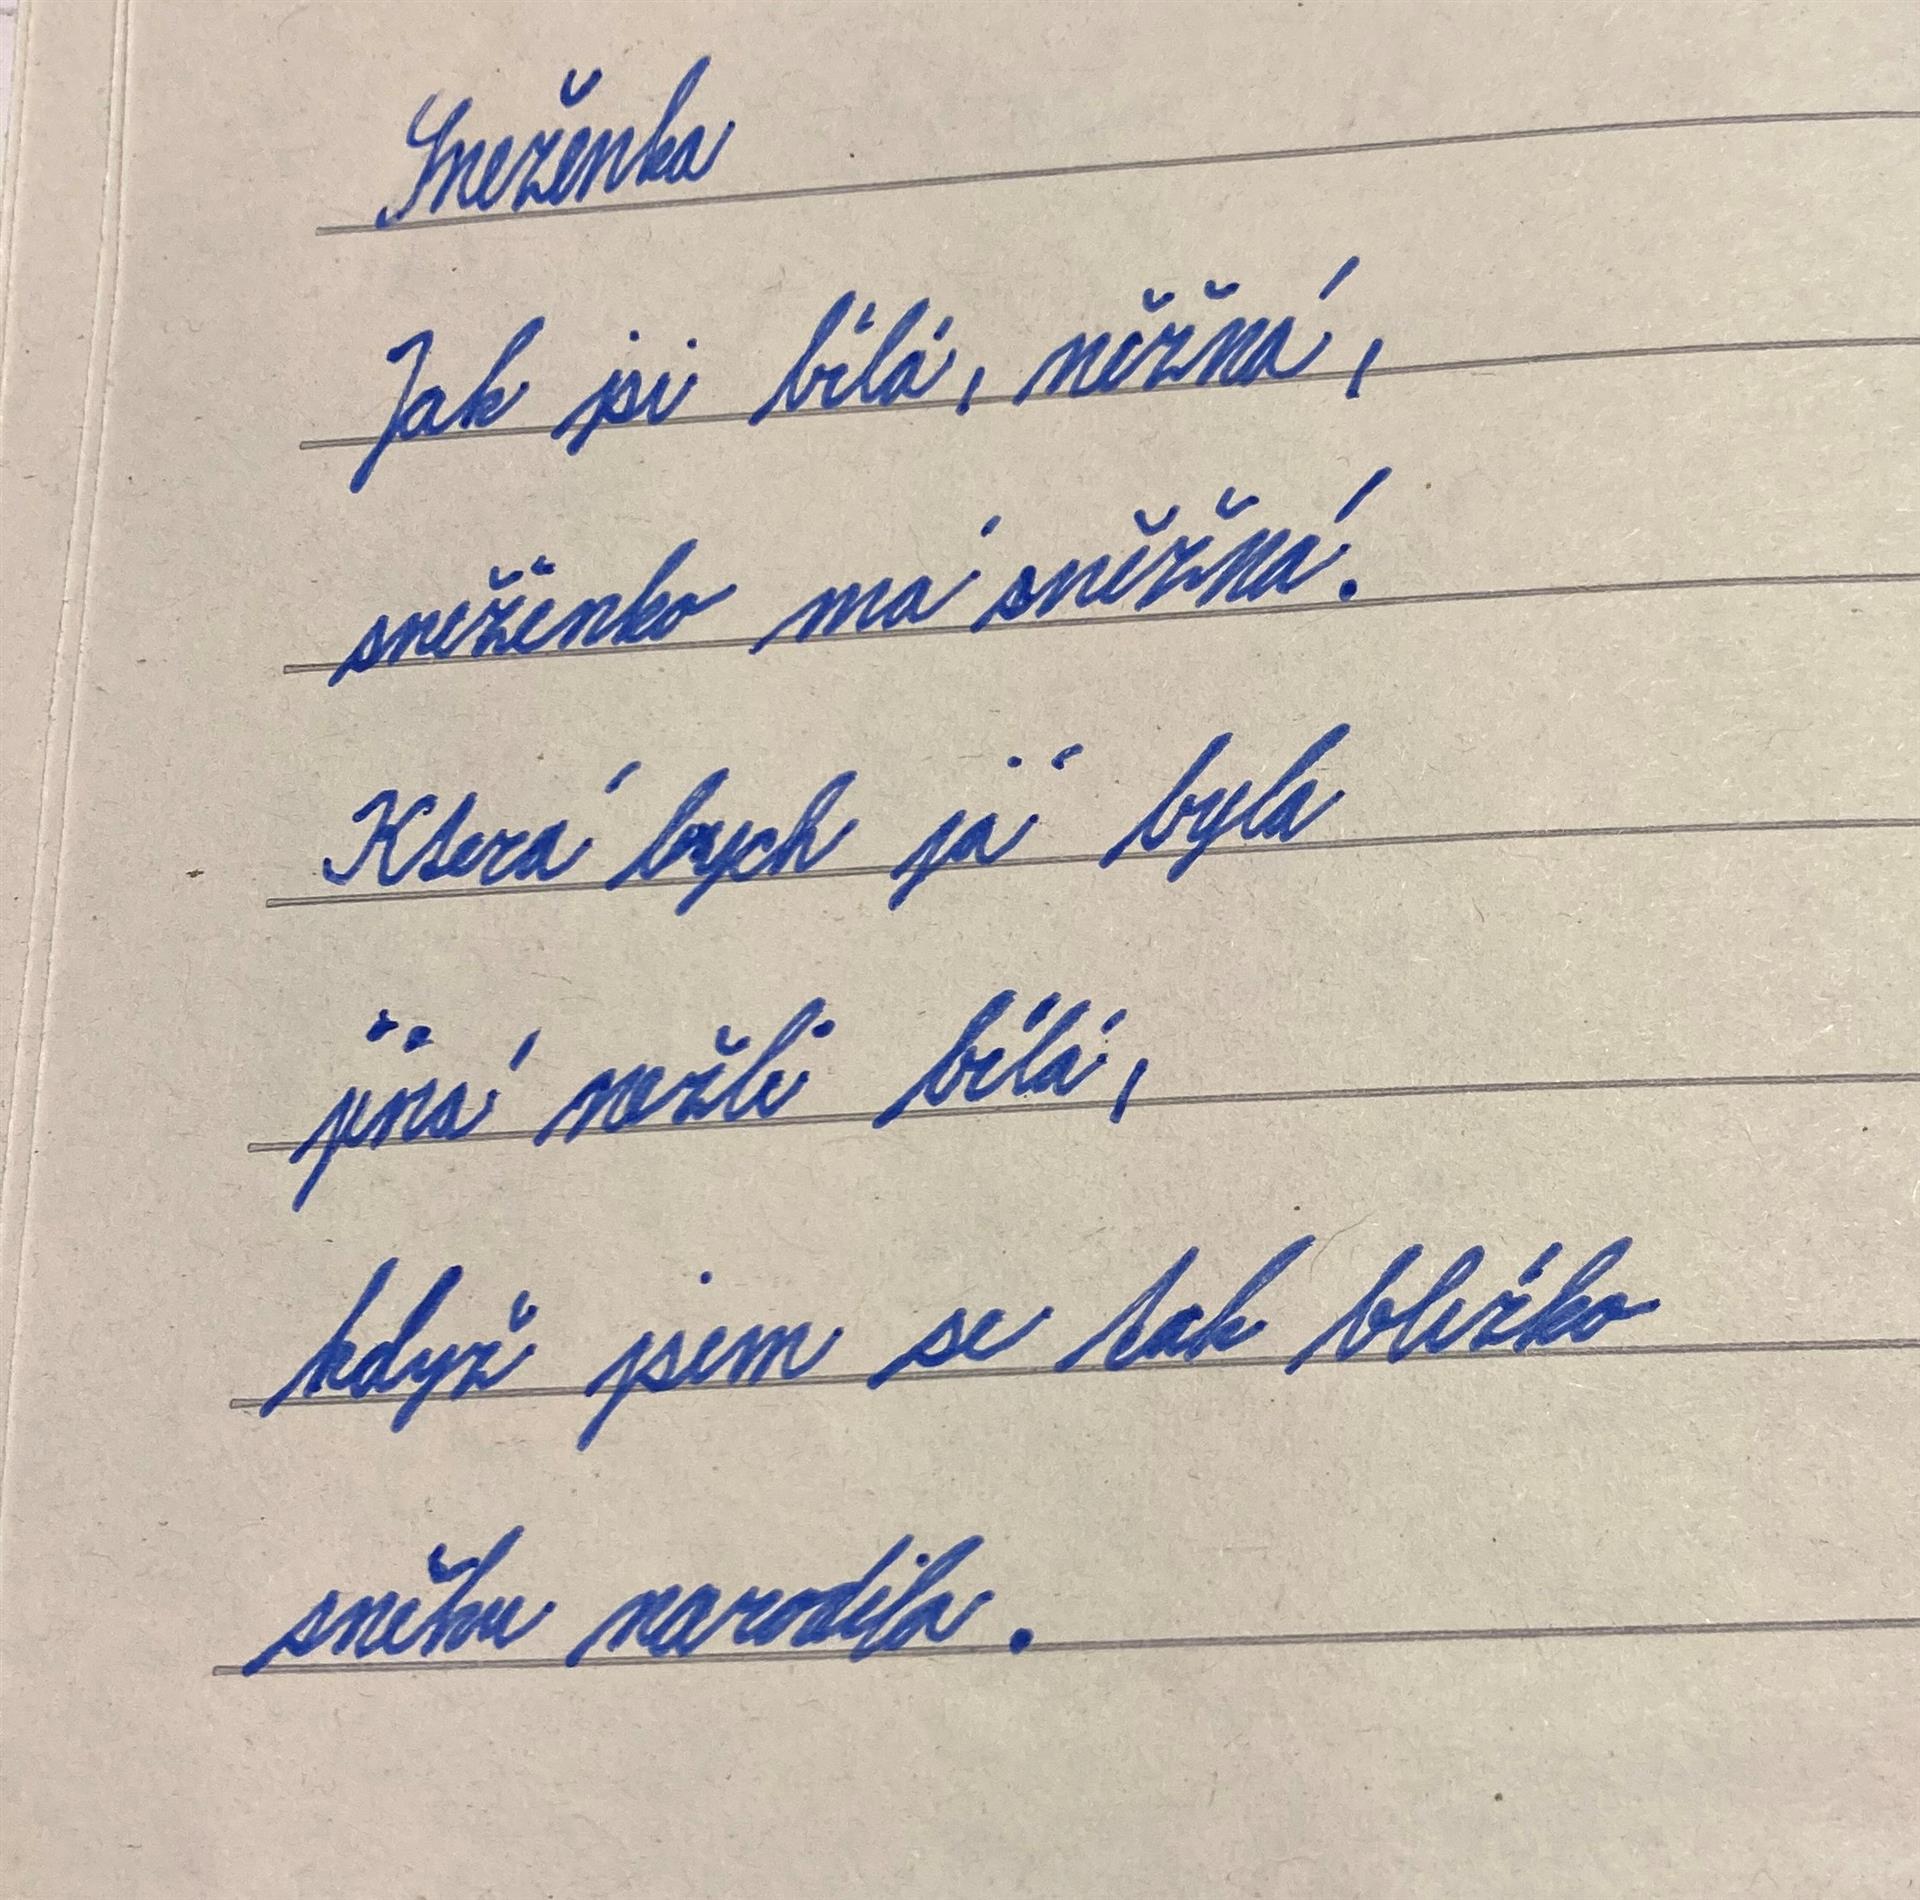 Sneženka
Jak jsi bílá, něžná,
sněženko má sněžná.
Která bych já byla
jiná nežli bílá,
když jsem se tak blízko
sněhu narodila.